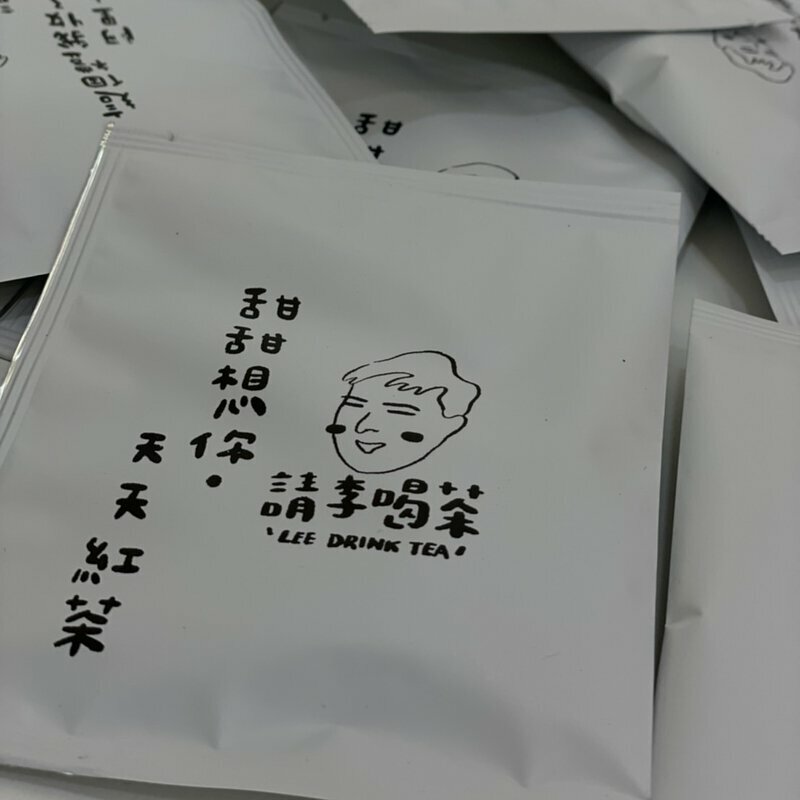 甜甜想你。
天天紅茶
請李喝茶
'LEE DRINK TEA'
甜